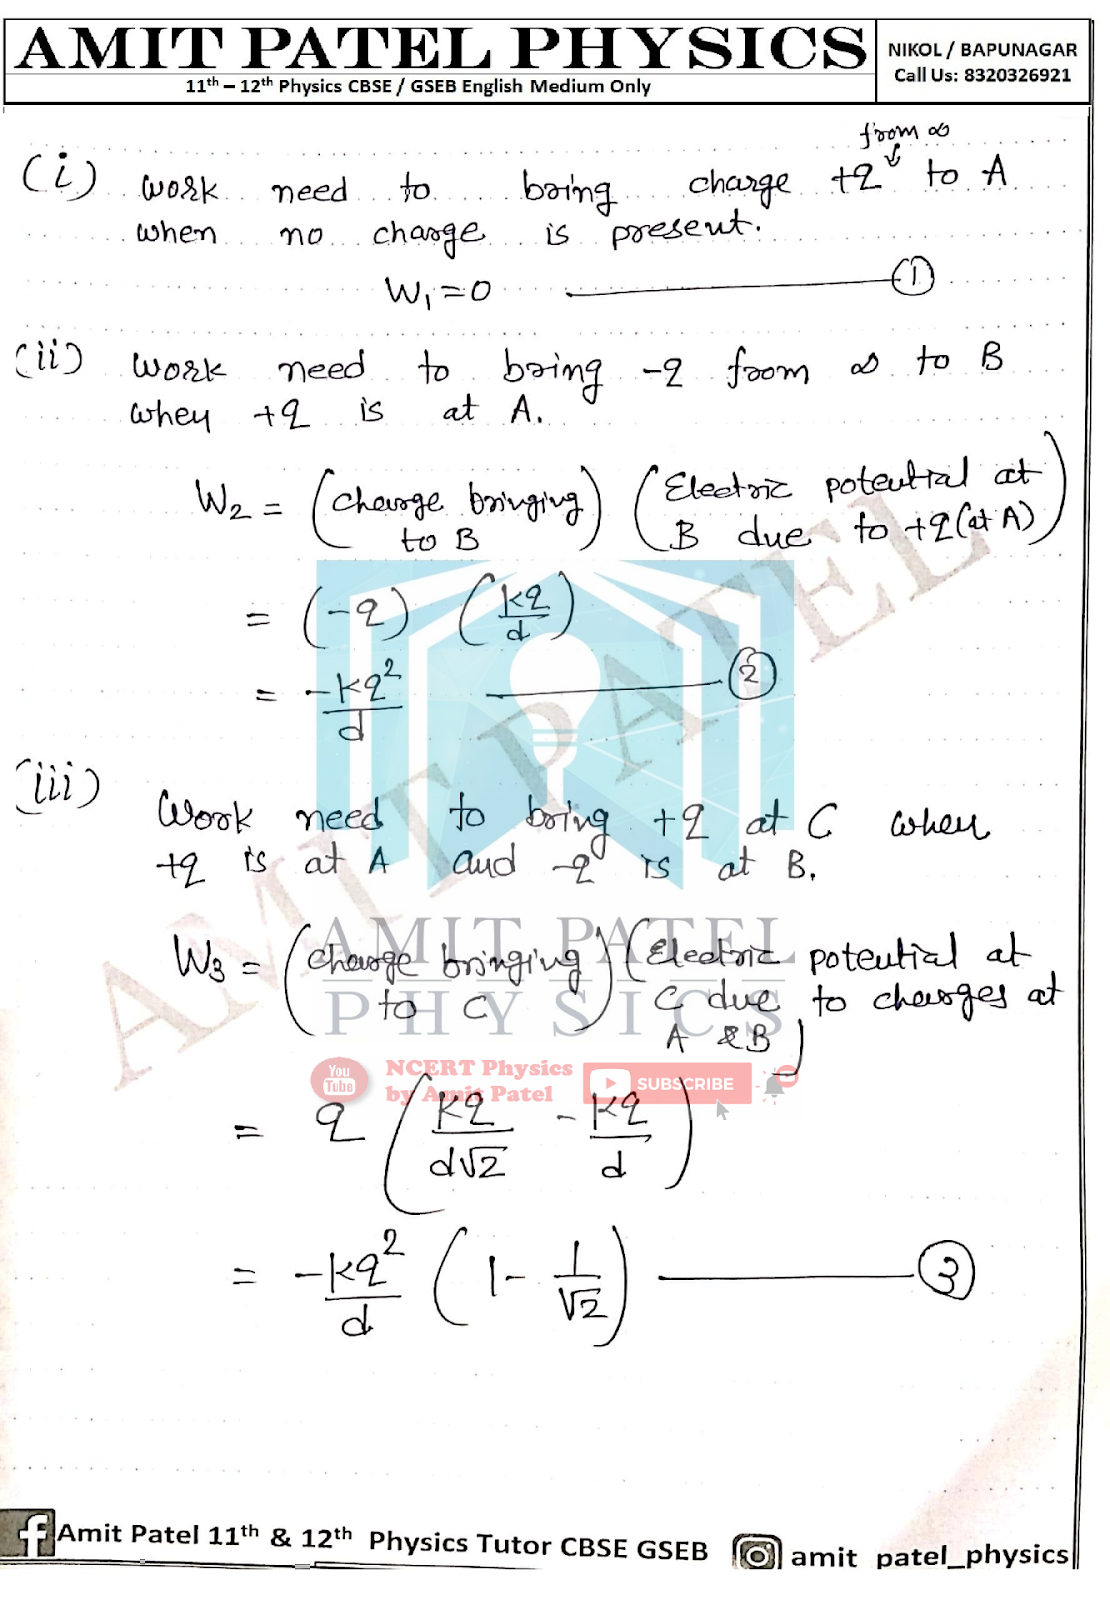 AMIT PATEL PHYSICS
11th – 12th Physics CBSE / GSEB English Medium Only
NIKOL / BAPUNAGAR
Call Us: 8320326921
from ∞
(i) work need to bring charge +q to A
when no charge is present.
W₁ = 0 ——— ①
(ii) work need to bring -q from ∞ to B
when +q is at A.
W₂ = (charge bringing to B) (Electric potential at B due to +q (at A))
= (-q) (kq/d)
= -kq²/d ——— ②
(iii) Work need to bring +q at C when
+q is at A and -q is at B.
W₃ = (charge bringing to C) (Electric potential at C due to charges at A & B)
= q (kq/d√2 - kq/d)
= -kq²/d (1 - 1/√2) ——— ③
AMIT PATEL
AMIT PATEL
PHYSICS
You Tube
NCERT Physics
by Amit Patel
SUBSCRIBE
f Amit Patel 11th & 12th Physics Tutor CBSE GSEB
amit patel_physics